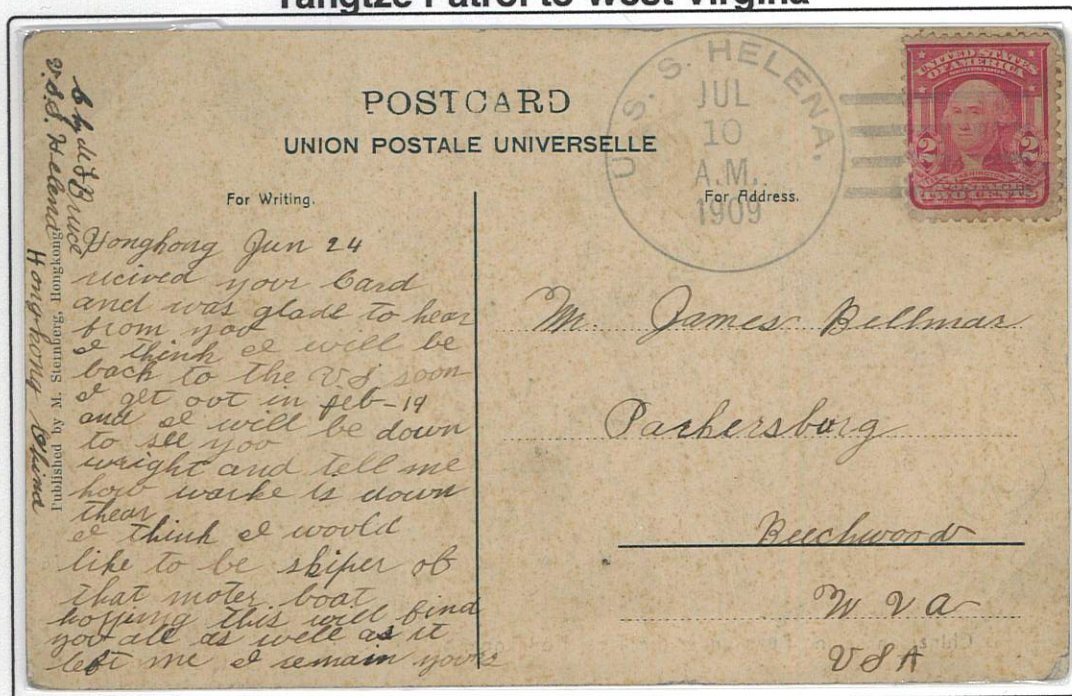 Yangtze Patrol to West Virgina
POSTCARD
UNION POSTALE UNIVERSELLE
For Writing.
For Address.
U. S. S. HELENA.
JUL
10
A.M.
1909
UNITED STATES
OF AMERICA
2 2
TWO CENTS
Published by M. Sternberg, Hongkong
Bruce
U.S.S. Helena
Hongkong China
Honghong Jun 24
recived your Card
and was glade to hear
from you
I think I will be
back to the US soon
I get out in feb-19
and I will be down
to see you
wright and tell me
how warke is down
thear
I think I would
like to be skiper of
that moter boat
hopping this will find
you all as well as it
left me I remain yours
Mr. James Bellmar
Parkersburg
Beechwood
W Va
USA